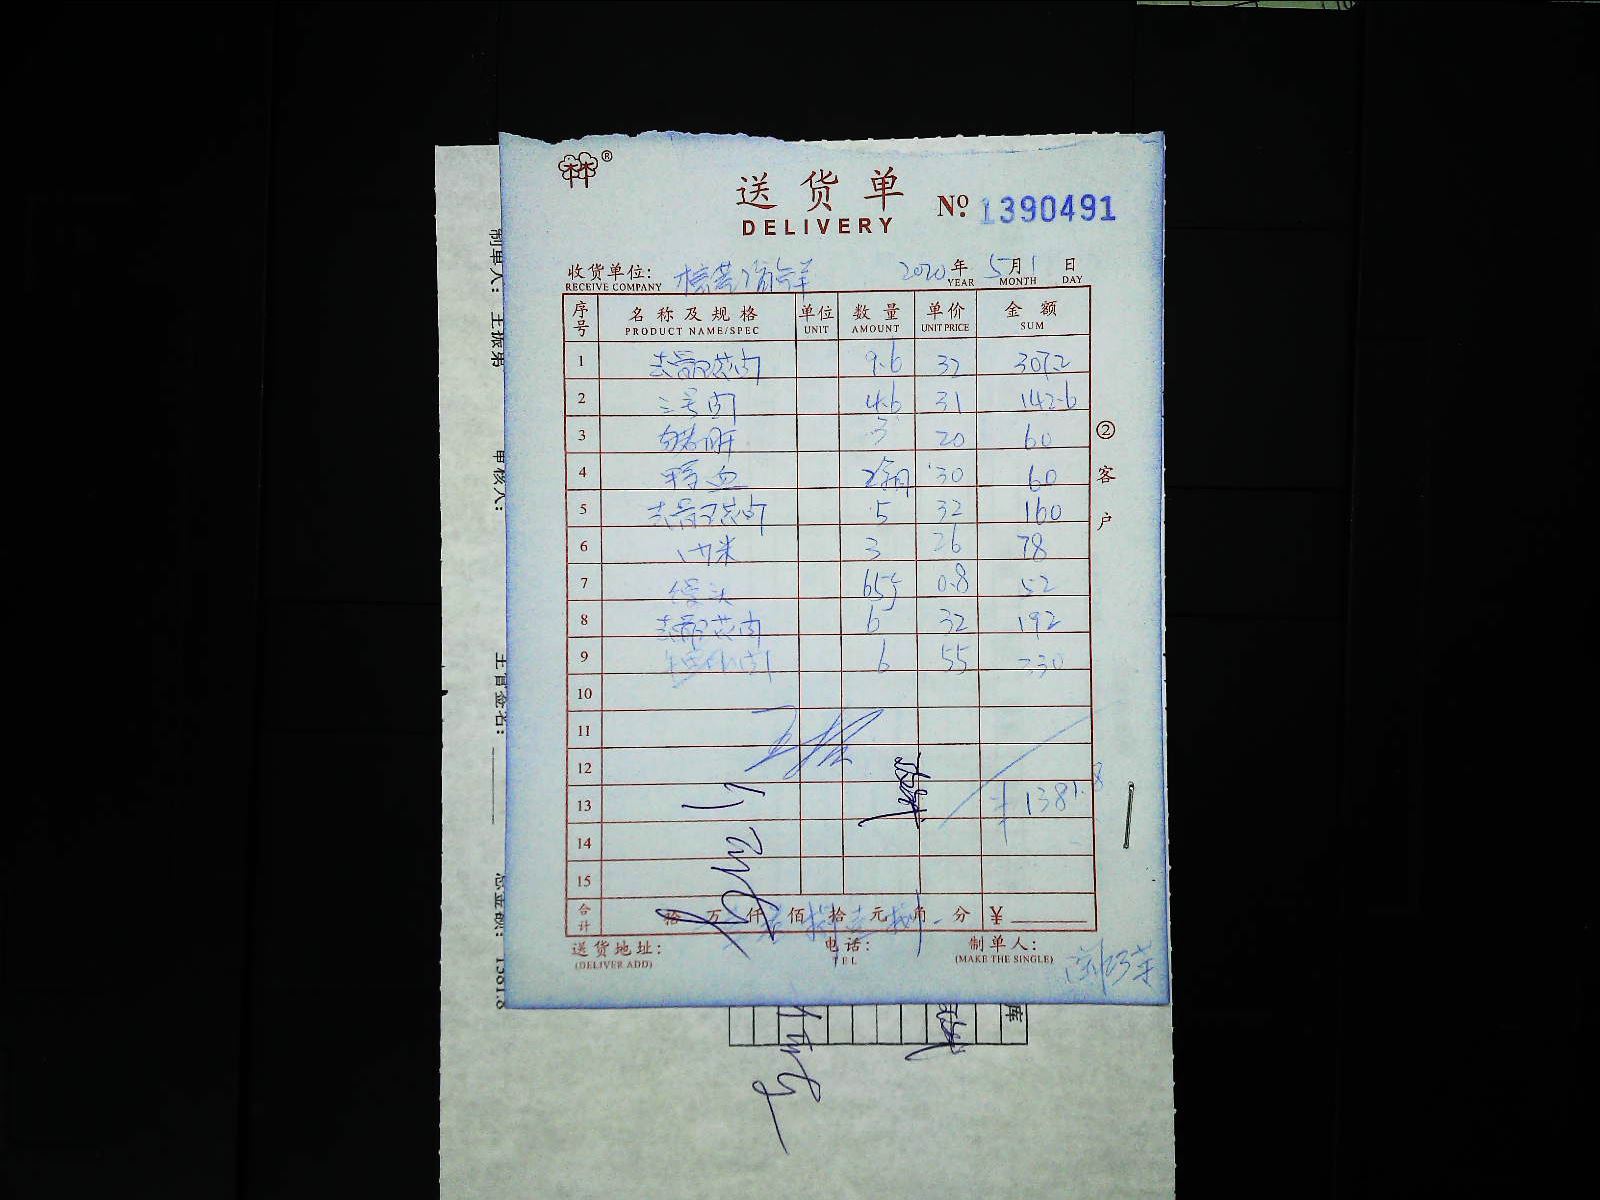 林®
送货单
DELIVERY
No. 1390491
收货单位:
RECEIVE COMPANY
2020年 5月1日
YEAR MONTH DAY
序号 名称及规格 单位 数量 单价 金额
PRODUCT NAME/SPEC UNIT AMOUNT UNIT PRICE SUM
1 去骨五花肉 9.6 32 307.2
2 三号肉 4.6 31 142.6
3 猪肝 3 20 60
4 血 30 60
5 去骨五花肉 5 32 160
6 3 26 78
7 馒头 65 0.8 52
8 去骨五花肉 6 32 192
9 6 55 330
10
11
12
13 ¥1381.8
14
15
合计 拾 万 仟 佰 拾 元 角 分 ¥
送货地址: 电话: 制单人:
(DELIVER ADD) TEL (MAKE THE SINGLE)
②客户
制单人: 王振弟
审核人:
主管签名:
总金额: 1381.8
库